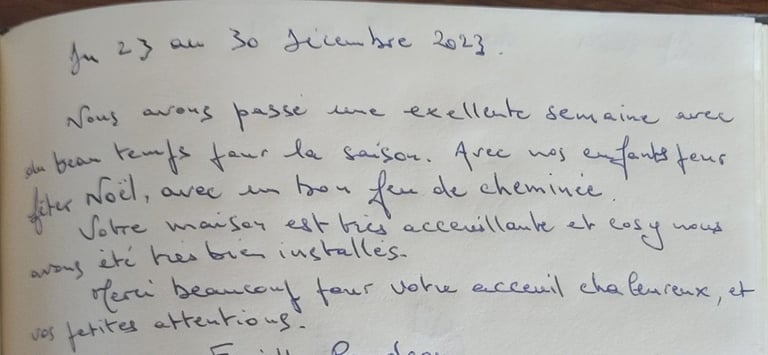 Du 23 au 30 décembre 2023.
Nous avons passé une exellente semaine avec
du beau temps pour la saison. Avec nos enfants pour
fêter Noël, avec un bon feu de cheminée.
Votre maison est très acceuillante et cosy nous
avons été très bien installés.
Merci beaucoup pour votre acceuil chaleureux, et
vos petites attentions.